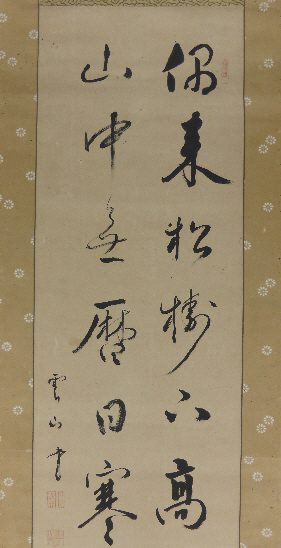 偶来松樹下高
山中無暦日寒
雲山書